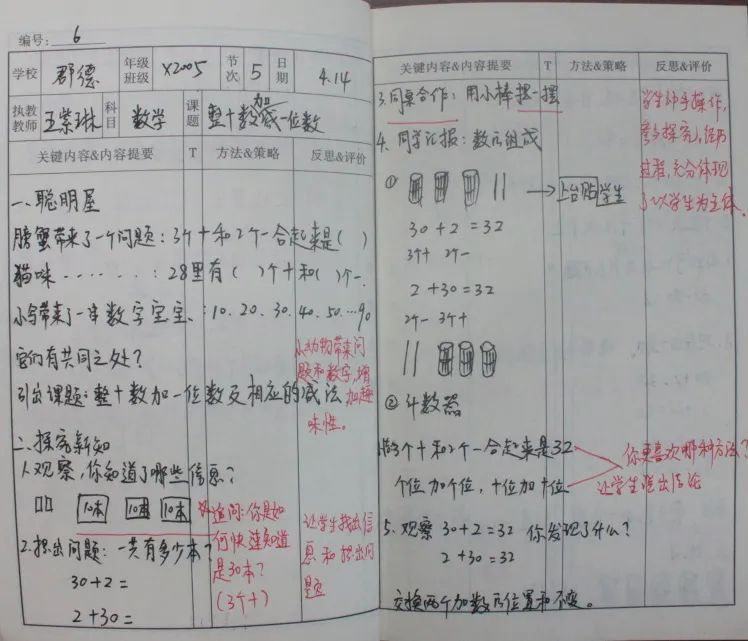 编号: 6
学校 群德 年级班级 X2005 节次 5 日期 4.14
执教教师 王紫琳 科目 数学 课题 整十数加减一位数
关键内容&内容提要 T 方法&策略 反思&评价
一、聪明屋
螃蟹带来了一个问题:3个十和2个一合起来是( )
猫咪.......:28里有( )个十和( )个一.
小鸟带来了一串数字宝宝:10.20.30.40.50.…90
它们有共同之处?
引出课题:整十数加一位数及相应的减法
从动物带来问
题和数字,增
加趣
味性。
二、探究新知
1.观察,你知道了哪些信息?
10本 10本 10本
2.提出问题:一共有多少本?
30+2=
2+30=
追问:你是如
何快速知道
是30本?
(3个十)
让学生找出信
息和提出问
题
关键内容&内容提要 T 方法&策略 反思&评价
3.同桌合作:用小棒摆一摆
4.同学汇报:数的组成
① → 上台贴学生
30+2=32
3个十 2个一
2+30=32
2个一 3个十
学生动手操作,
参与探究,经历
过程,充分体现
了以学生为主体.
② 计数器
3个十和2个一合起来是32
个位加个位,十位加十位
你更喜欢哪种方法?
让学生得出结论
5.观察 30+2=32 你发现了什么?
2+30=32
交换两个加数的位置和不变。